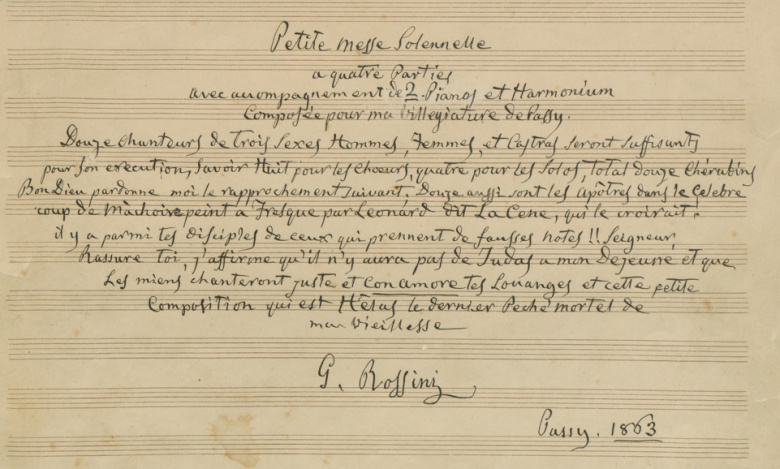 Petite Messe Solennelle
a quatre Parties
avec accompagnement de 2 Pianos et Harmonium
Composée pour ma Villegiature de Passy.
Douze Chanteurs de trois Sexes Hommes, Femmes, et Castras seront suffisants
pour son execution, savoir Huit pour les Choeurs, quatre pour les Solos, total douze Chérubins
Bon Dieu pardonne moi le rapprochement suivant. Douze aussi sont les Apôtres dans le Célebre
coup de Mâchoire peint a Fresque par Léonard dit La Cene, qui le croirait!
il y a parmi tes disciples de ceux qui prennent de fausses notes!! Seigneur,
Rassure toi, j'affirme qu'il n'y aura pas de Judas a mon Dejeuné et que
Les miens chanteront juste et Con amore tes Louanges et cette petite
Composition qui est Hélas le dernier Peché mortel de
ma Vieillesse
G. Rossini
Passy. 1863